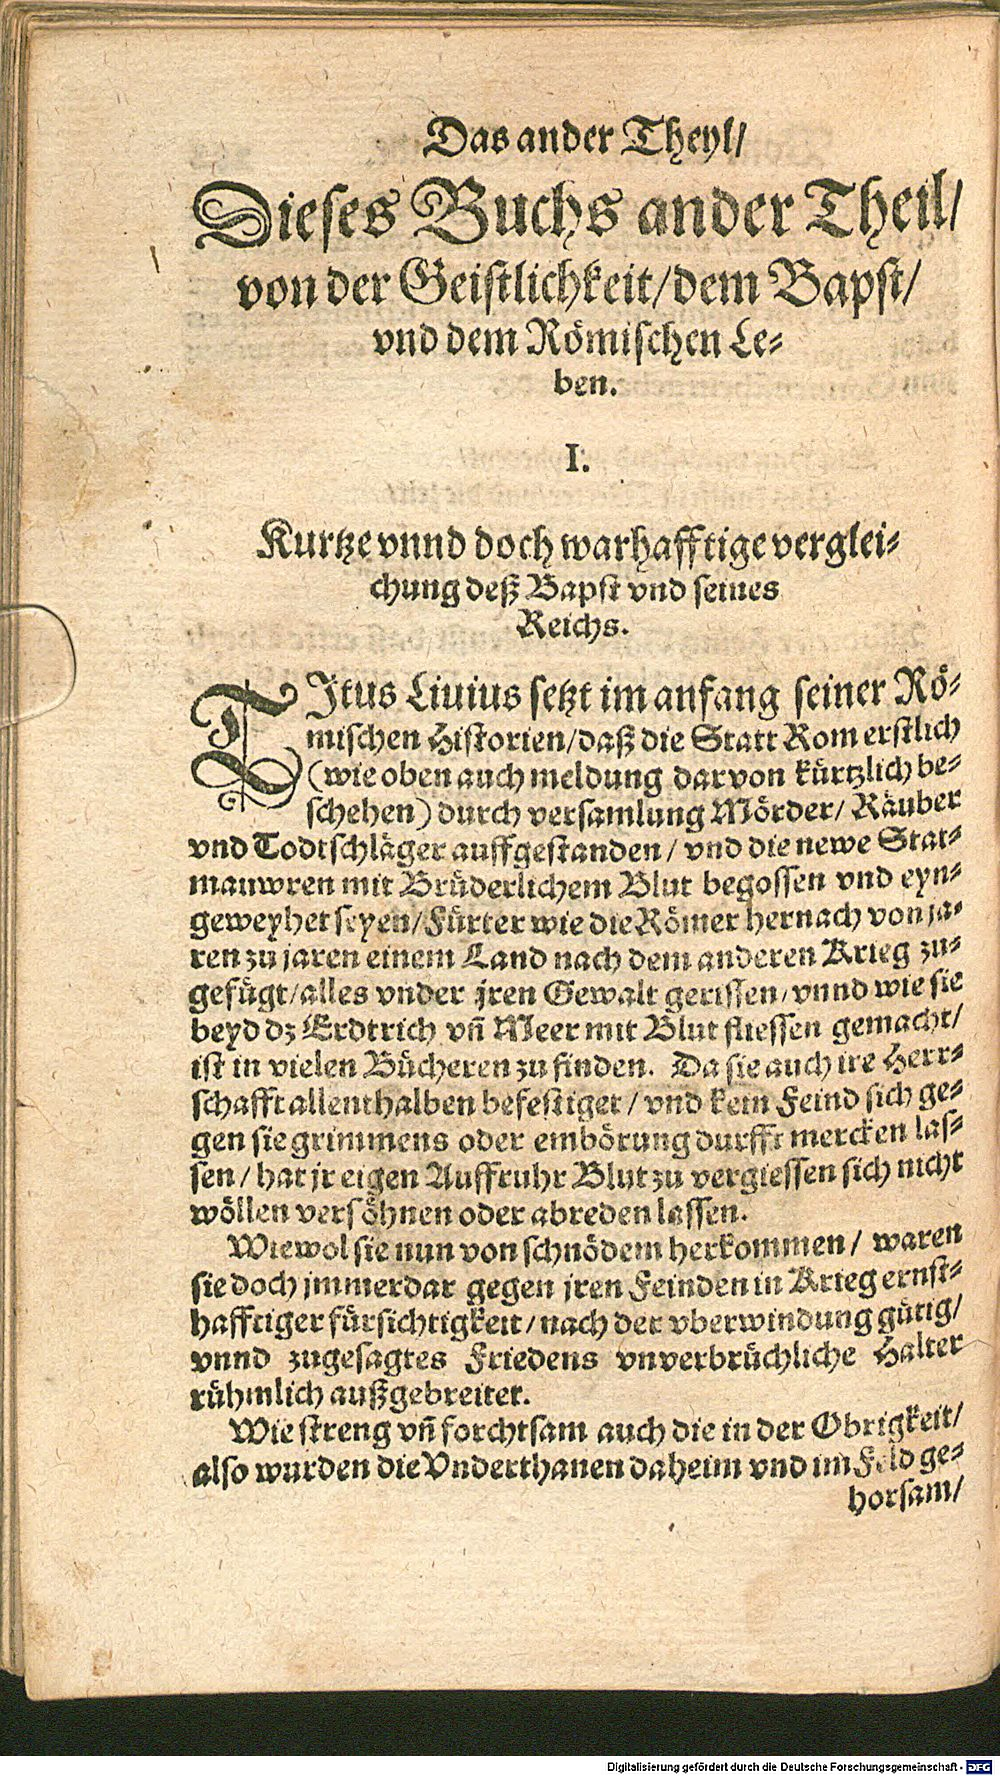 Das ander Theyl/
Dieses Buchs ander Theil/
von der Geistlichkeit/dem Bapst/
vnd dem Römischen Le-
ben.
I.
Kurtze vnnd doch warhafftige verglei-
chung deß Bapst vnd seines
Reichs.
TItus Liuius setzt im anfang seiner Rö-
mischen Historien/daß die Statt Rom erstlich
(wie oben auch meldung darvon kürtzlich be-
schehen) durch versamlung Mörder/ Räuber
vnd Todtschläger auffgestanden/ vnd die newe Stat-
mauwren mit Brüderlichem Blut begossen vnd eyn-
geweyhet seyen/Fürter wie die Römer hernach von ja-
ren zu jaren einem Land nach dem anderen Krieg zu-
gefügt/alles vnder jren Gewalt gerissen/vnnd wie sie
beyd dz Erdtrich vñ Meer mit Blut fliessen gemacht/
ist in vielen Bücheren zu finden. Da sie auch ire Herr-
schafft allenthalben befestiget/ vnd kein Feind sich ge-
gen sie grimmens oder embörung durfft mercken las-
sen/ hat jr eigen Auffruhr Blut zu vergiessen sich nicht
wöllen versöhnen oder abreden lassen.
Wiewol sie nun von schnödem herkommen/ waren
sie doch jmmerdar gegen jren Feinden in Krieg ernst-
hafftiger fürsichtigkeit/nach der vberwindung gütig/
vnnd zugesagtes Friedens vnverbrüchliche Halter
rühmlich außgebreitet.
Wie streng vñ forchtsam auch die in der Obrigkeit/
also wurden die Vnderthanen daheim vnd im Feld ge-
horsam/
Digitalisierung gefördert durch die Deutsche Forschungsgemeinschaft - DFG